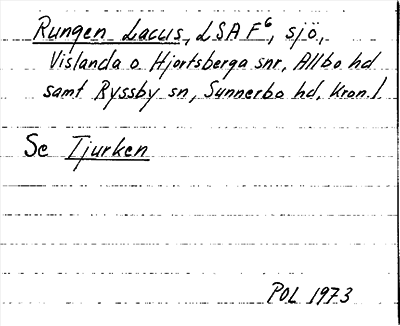 Rungen Lacus, LSA F6, sjö,
Vislanda o Hjortsberga snr, Allbo hd
samt Ryssby sn, Sunnerbo hd, Kron. l
Se Tjurken
POL 1973